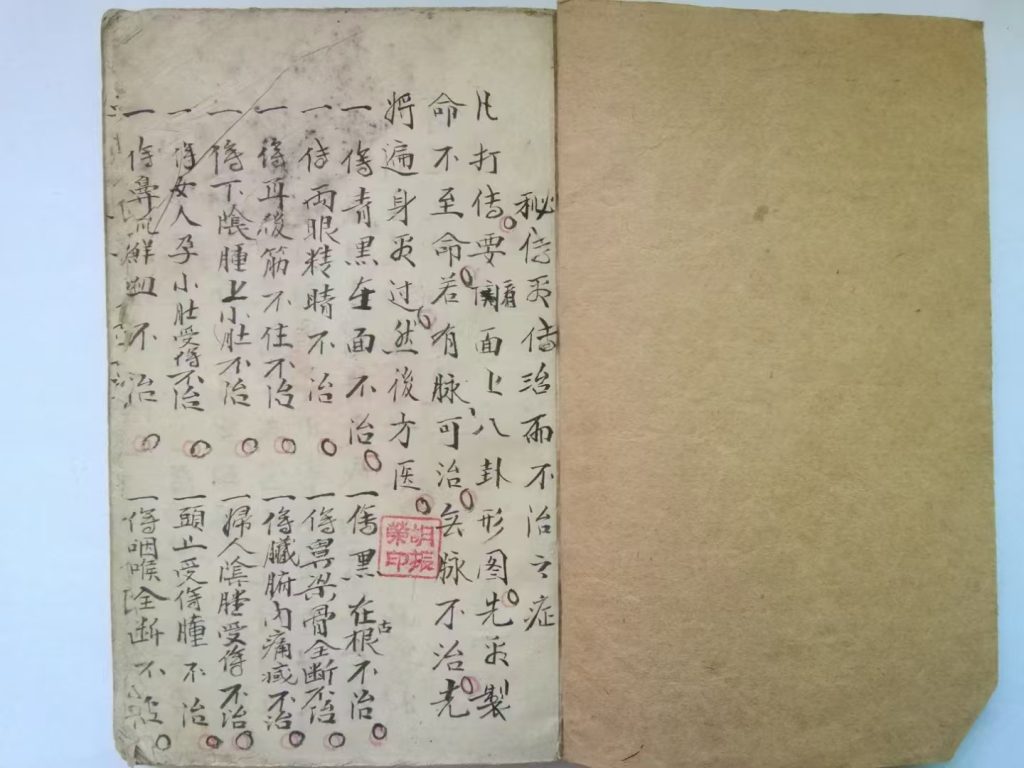 秘传受传治而不治之症
凡打传要開看面上八卦形图先受製
命不至命若有脉可治無脉不治先
将遍身受过然後方医
一傷青黑全面不治
一傷黑在根舌不治
一傷両眼精睛不治
一傷鼻梁骨全断不治
一傷耳後筋不住不治
一傷臟腑内痛感不治
一傷下陰腫上小肚不治
一婦人陰腫受傷不治
一傷女人孕小肚受傷不治
一頭上受傷腫不治
一傷鼻流鮮血不治
一傷咽喉全断不
胡振榮印